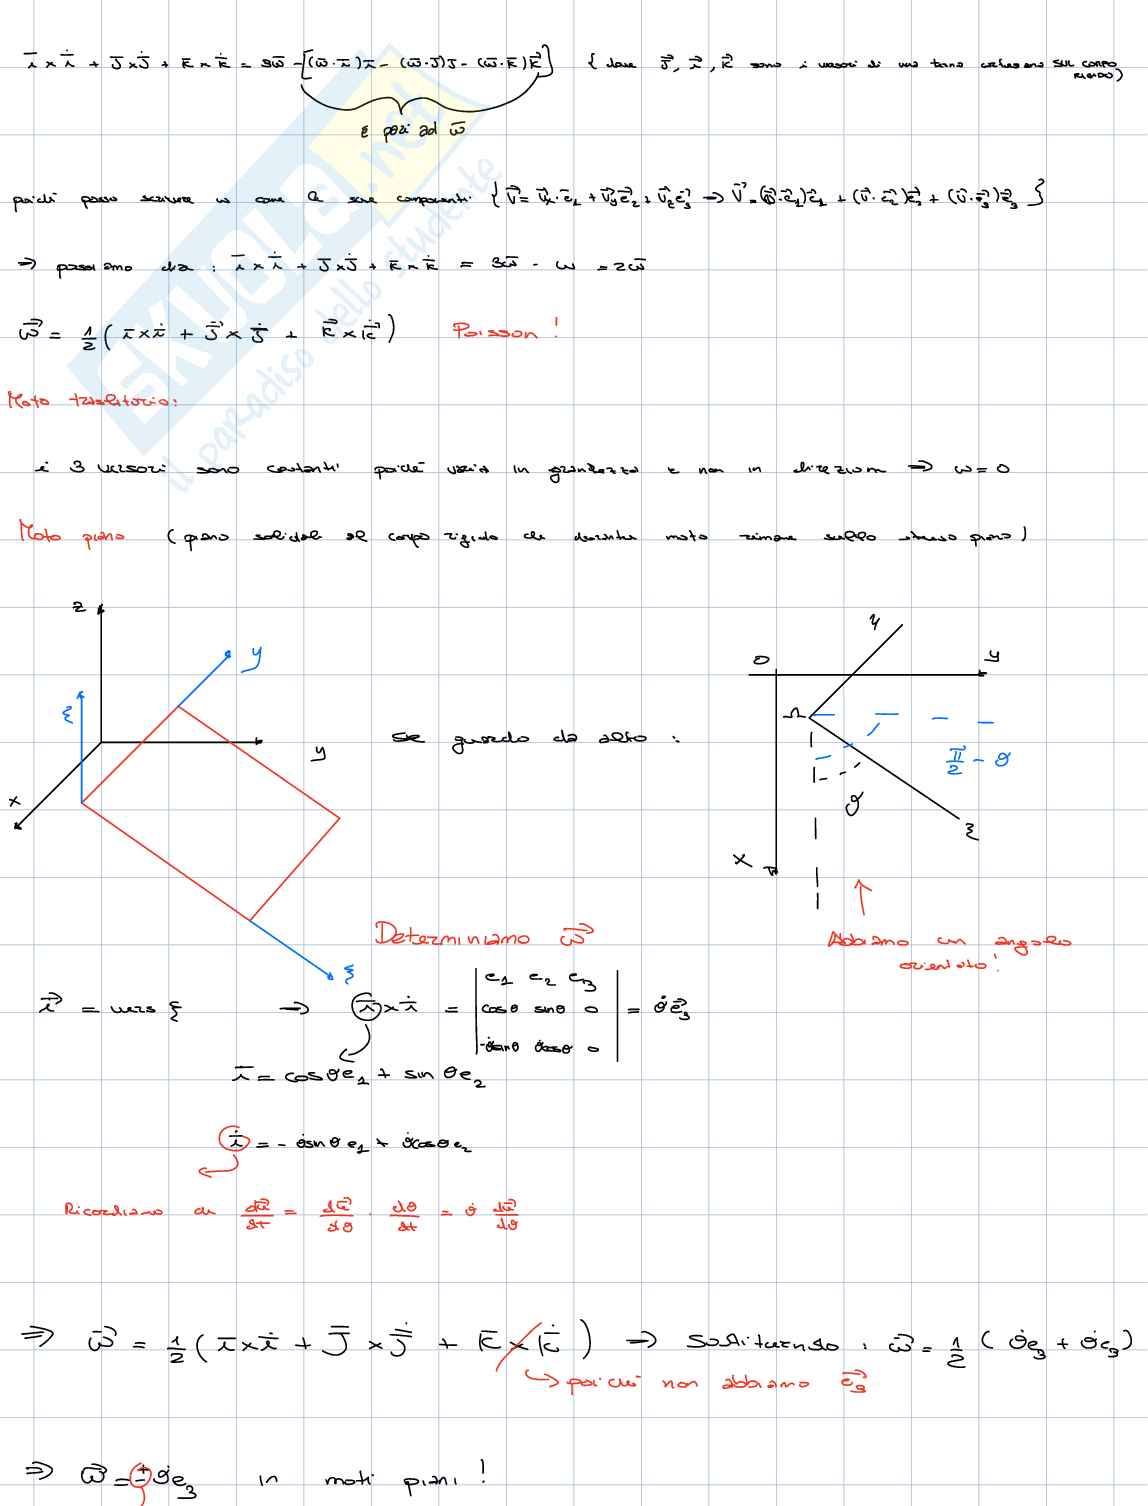 ī × i̇ + J̄ × J̇ + k̄ × k̇ = 3ω̄ - [(ω̄·ī)ī - (ω̄·J̄)J - (ω̄·k̄)k⃗] { dove J⃗, i⃗, k⃗ sono i versori di una terna SUL CORPO RIGIDO)
è pari ad ω̄
poiché posso scrivere ω come le sue componenti {V⃗ = V⃗x·ē₁ + V⃗y e⃗₂ + V⃗z e⃗₃ → V⃗ = (V⃗·e⃗₁)e⃗₁ + (V⃗·e⃗₂)e⃗₂ + (V⃗·e⃗₃)e⃗₃}
⇒ possiamo dire : ī × i̇ + J̄ × J̇ + k̄ × k̇ = 3ω̄ - ω = 2ω̄
ω⃗ = 1/2 ( ī × i̇ + J⃗ × J̇ + k⃗ × k̇ ) Poisson !
Moto traslatorio:
i 3 versori sono costanti poiché varia in grandezza e non in direzione ⇒ ω = 0
Moto piano ( piano solidale al corpo rigido che durante moto rimane sullo stesso piano )
z
y
ξ
y
x
ξ
se guardo da alto :
O
y
y
Ω
π/2 - θ
θ
ξ
x
Abbiamo un angolo
orientato!
Determiniamo ω⃗
i⃗ = vers ξ → ī × i̇ = | e₁ e₂ e₃ | = θ̇ e⃗₃
cosθ sinθ 0
-θ̇sinθ θ̇cosθ 0
ī = cosθe₁ + sinθe₂
i̇ = - θ̇sinθe₁ + θ̇cosθe₂
Ricordiamo che du⃗/dt = du⃗/dθ · dθ/dt = θ̇ du⃗/dθ
⇒ ω⃗ = 1/2 ( ī × i̇ + J̄ × J̇ + k̄ × k̇ ) → Sostituendo : ω⃗ = 1/2 ( θ̇e₃ + θ̇e₃ )
↳ poiché non abbiamo e⃗₃
⇒ ω⃗ = ± θ̇e₃ in moti piani !
SKUOLA.net
il paradiso dello studente